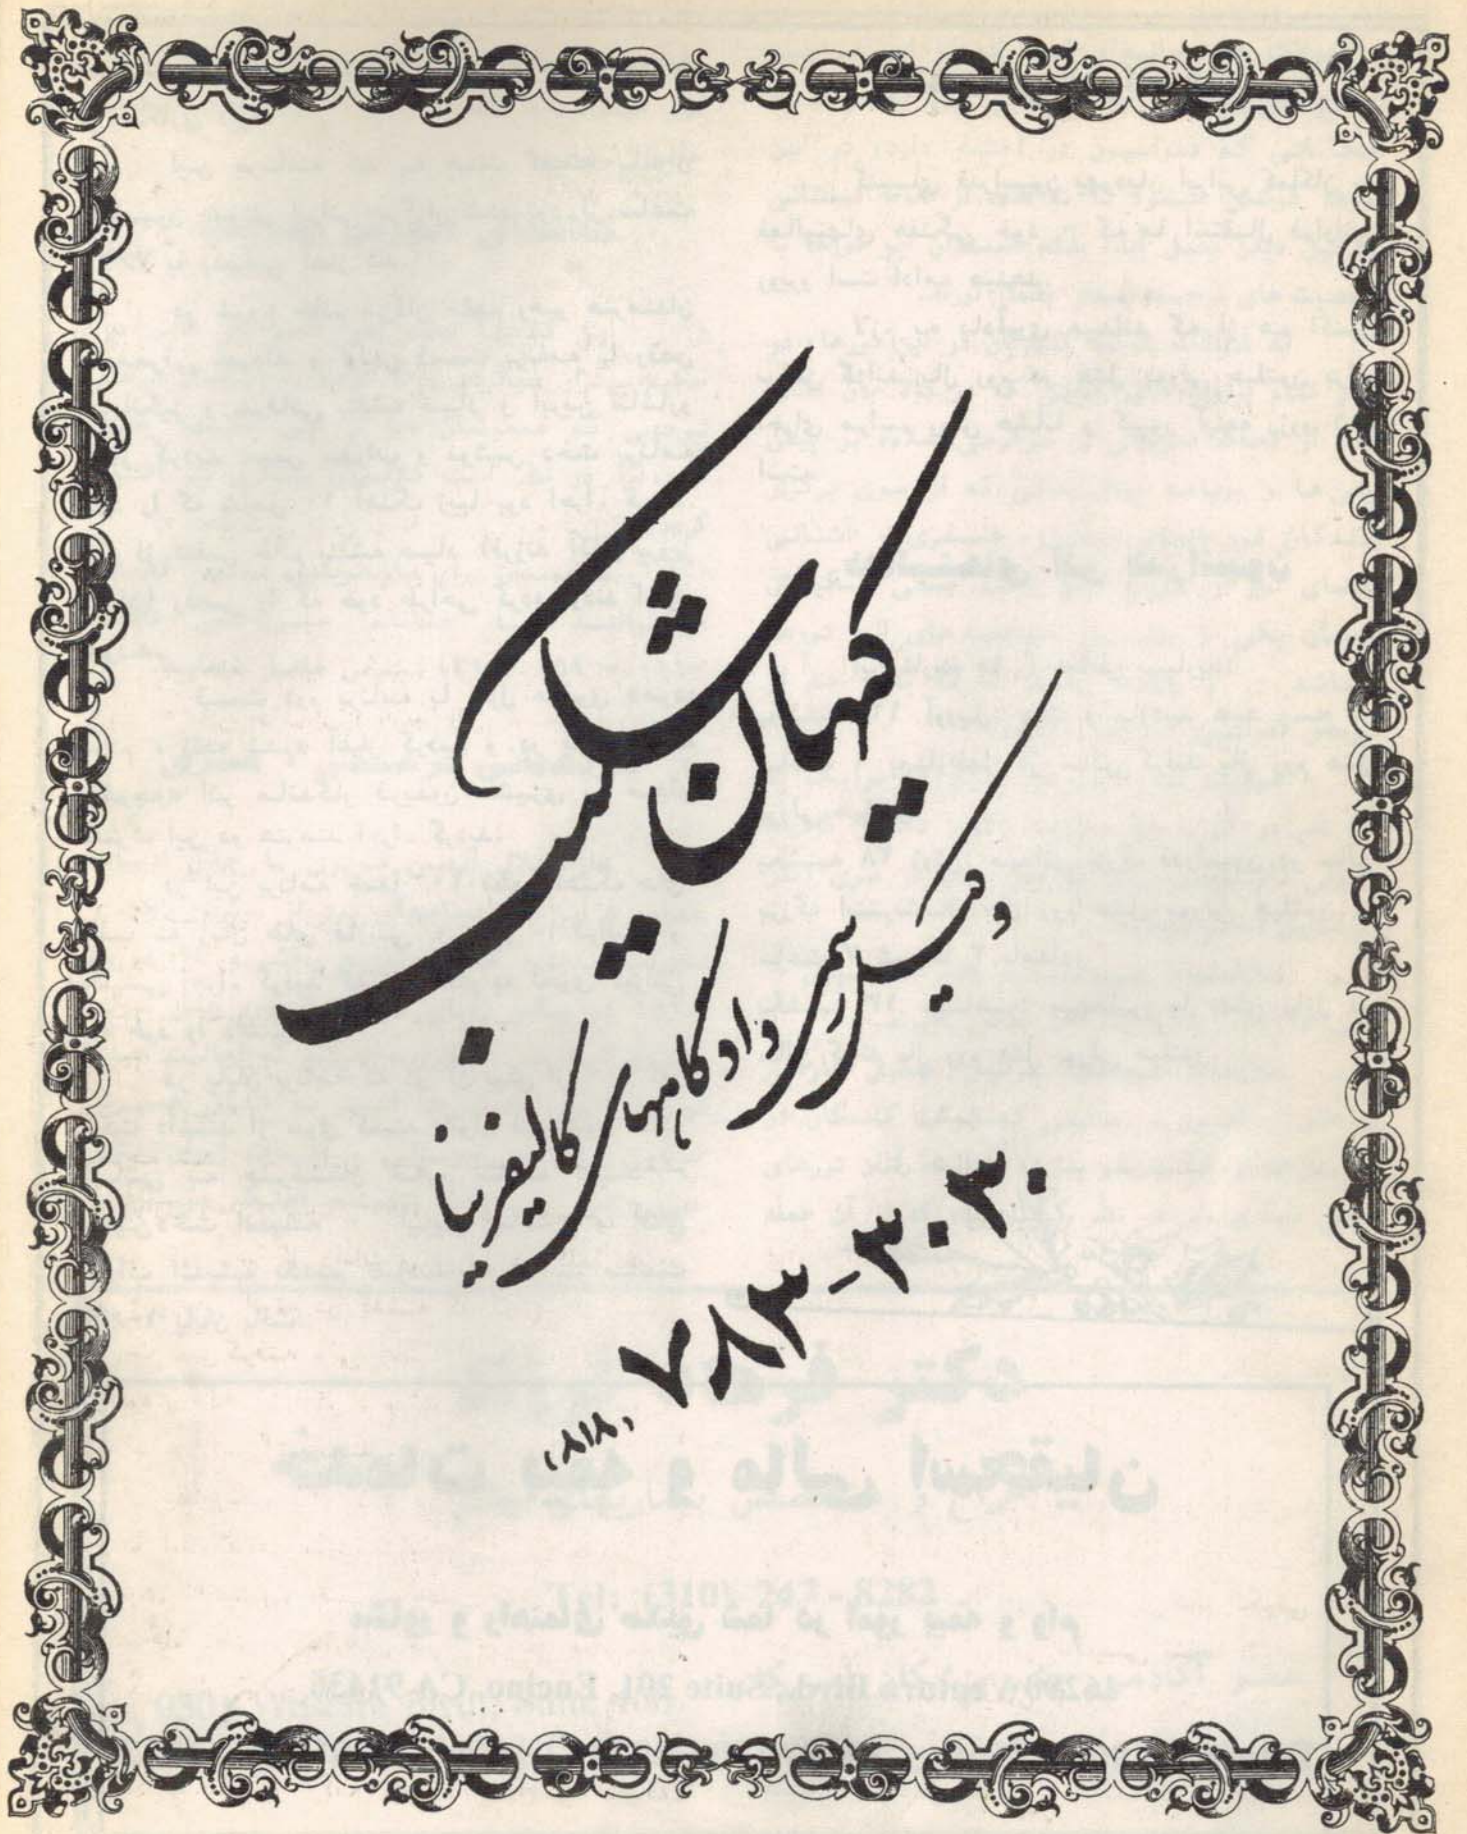 کیهان شاکیب
وکیل رسمی دادگاههای کالیفرنیا
۷۸۳-۳۰۳۰
(۸۱۸)